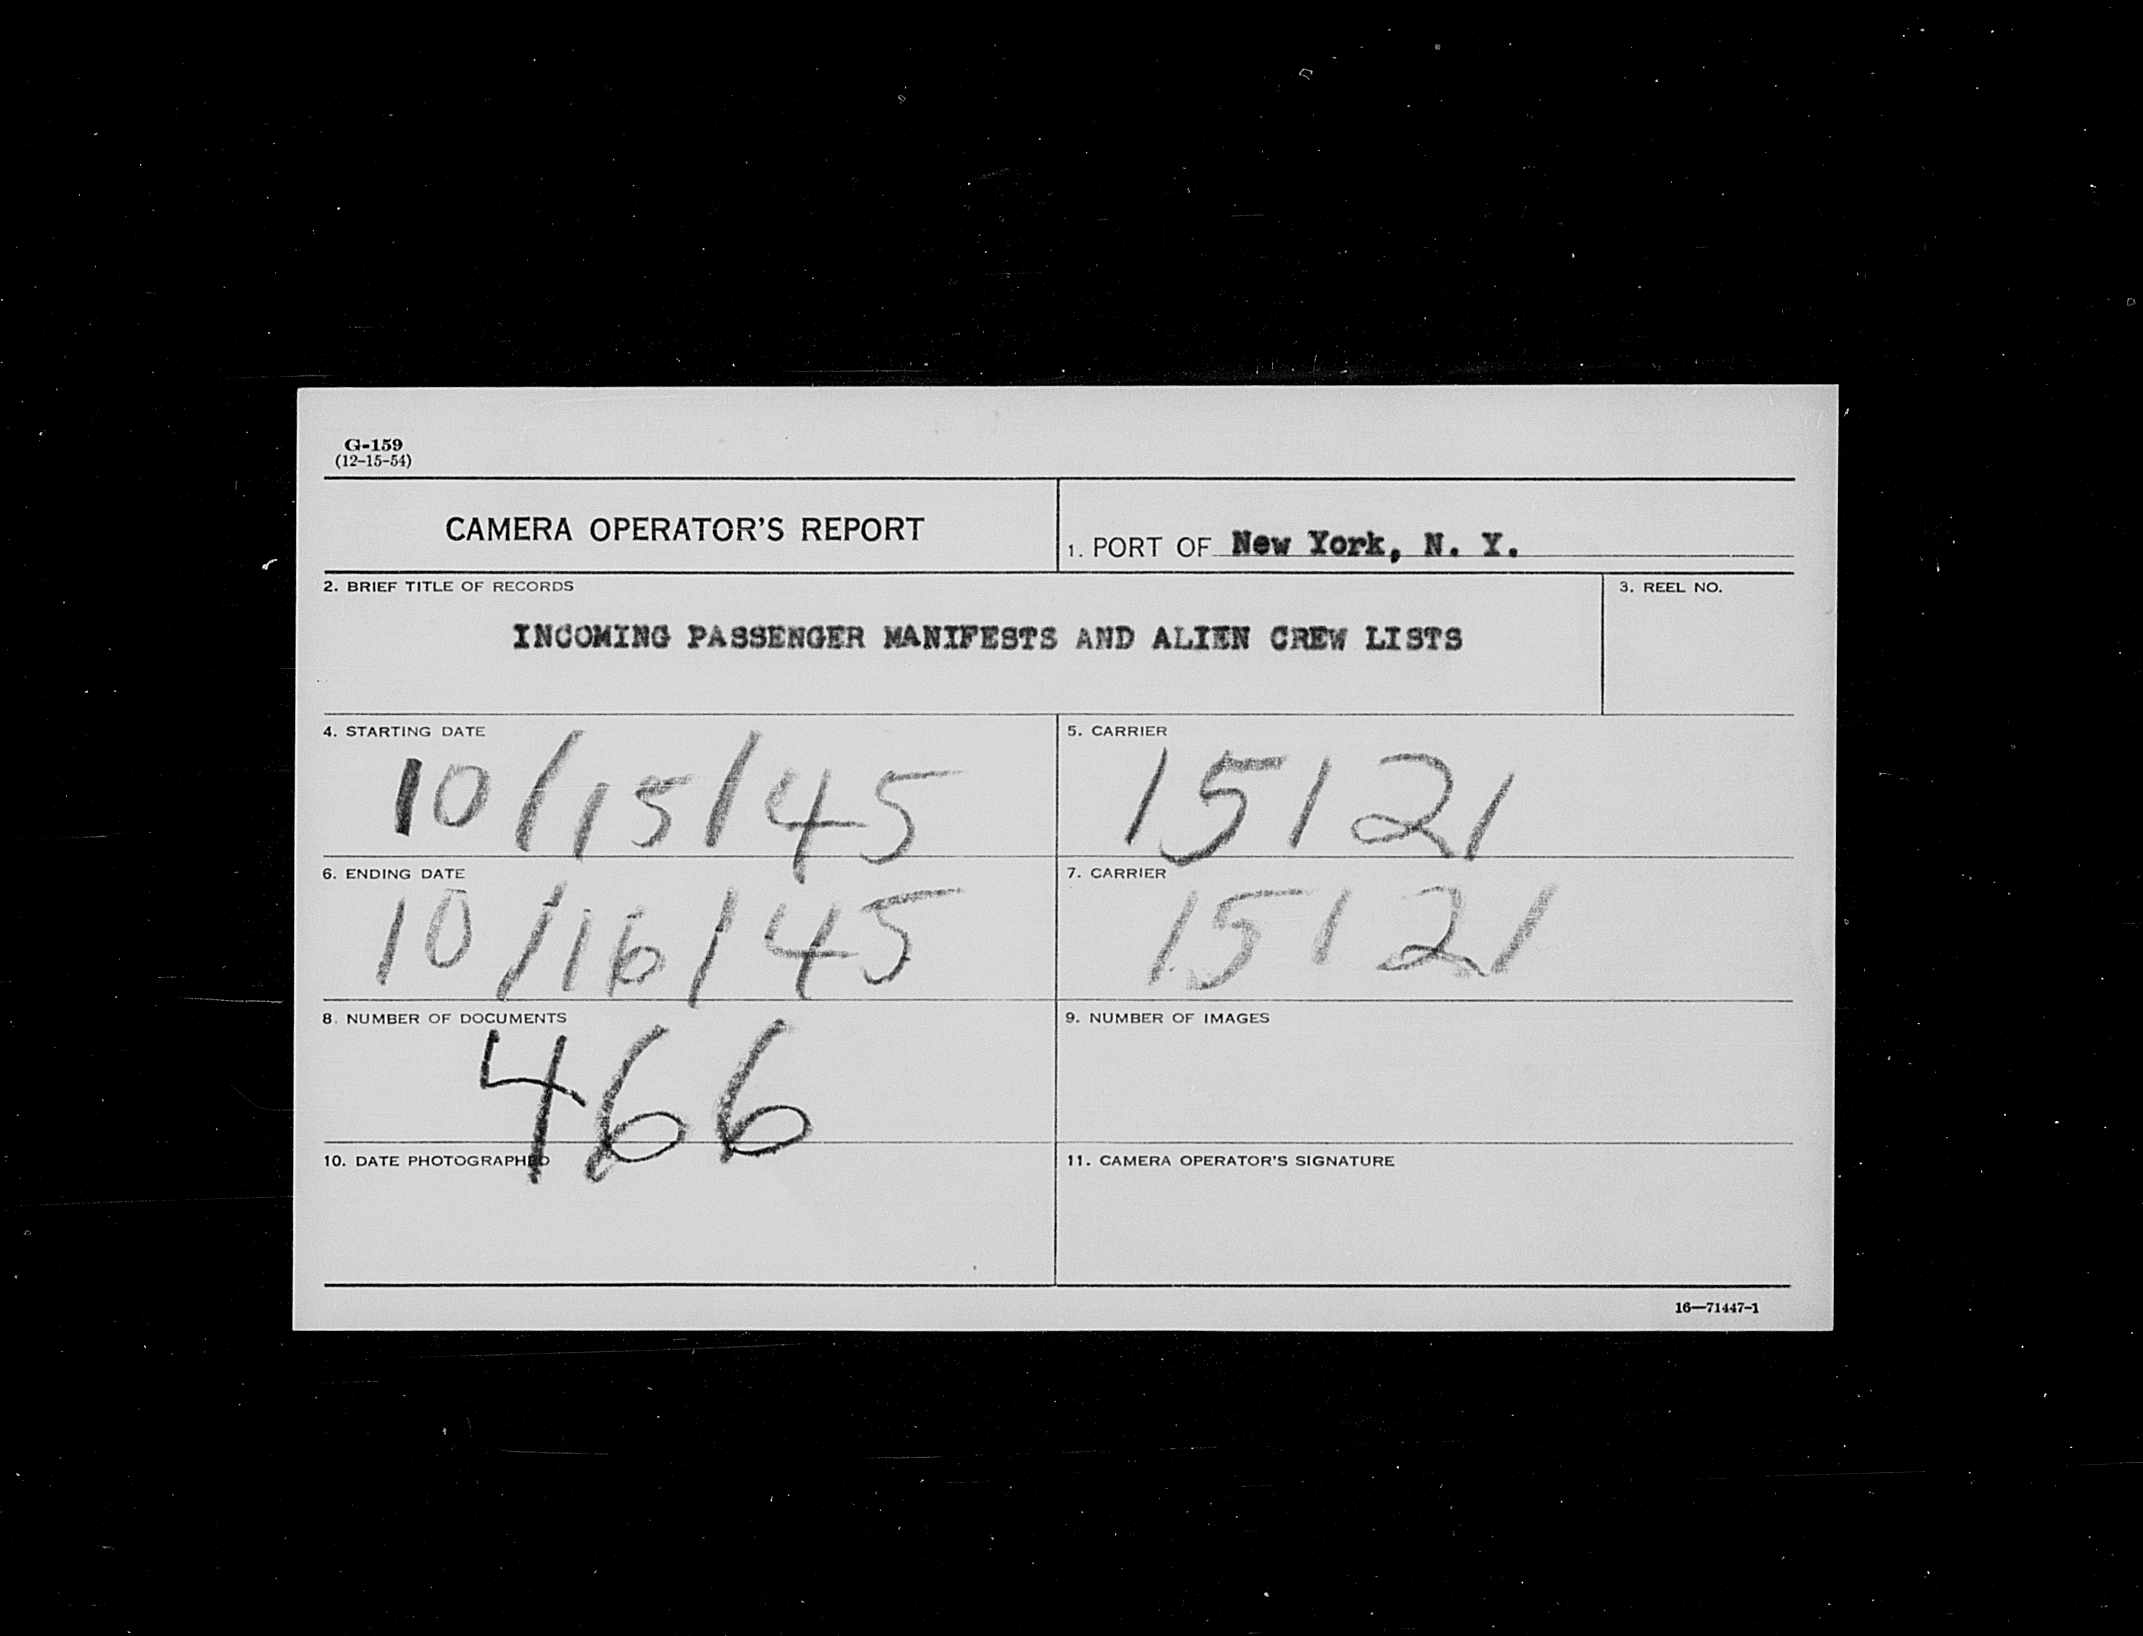 G-159
(12-15-54)
CAMERA OPERATOR'S REPORT
1. PORT OF New York, N. Y.
2. BRIEF TITLE OF RECORDS
3. REEL NO.
INCOMING PASSENGER MANIFESTS AND ALIEN CREW LISTS
4. STARTING DATE
5. CARRIER
10/15/45
15121
6. ENDING DATE
7. CARRIER
10/16/45
15121
8. NUMBER OF DOCUMENTS
9. NUMBER OF IMAGES
466
10. DATE PHOTOGRAPHED
11. CAMERA OPERATOR'S SIGNATURE
16—71447-1